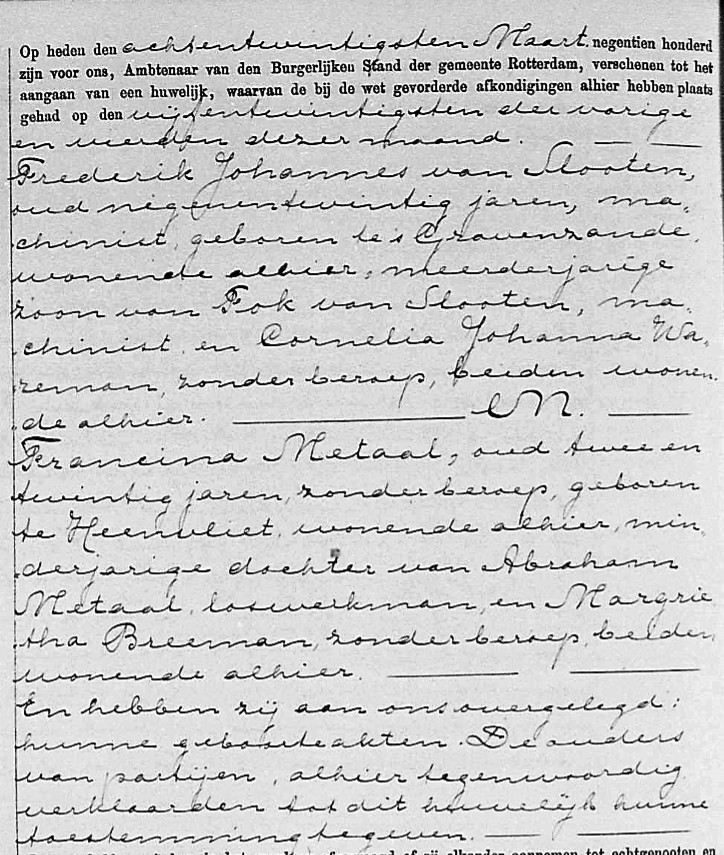 Op heden den achtentwintigsten Maart. negentien honderd
zijn voor ons, Ambtenaar van den Burgerlijken Stand der gemeente Rotterdam, verschenen tot het
aangaan van een huwelijk, waarvan de bij de wet gevorderde afkondigingen alhier hebben plaats
gehad op den vijfentwintigsten der vorige
en vierden dezer maand.
Frederik Johannes van Slooten,
oud negenentwintig jaren, ma,
chinist, geboren te 's Gravenzande,
wonende alhier, meerderjarige
zoon van Fok van Slooten, ma,
chinist, en Cornelia Johanna Wa,
reman, zonder beroep, beiden wonen,
de alhier. EN.
Francina Metaal, oud twee en
twintig jaren, zonder beroep, geboren
te Heenvliet, wonende alhier, min,
derjarige dochter van Abraham
Metaal, loswerkman, en Margrie
tha Breeman, zonder beroep, beiden
wonende alhier.
En hebben zij aan ons overgelegd:
hunne geboorteakten. De ouders
van partijen, alhier tegenwoordig
verklaarden tot dit huwelijk hunne
toestemming te geven.
aannemen tot echtgenooten en